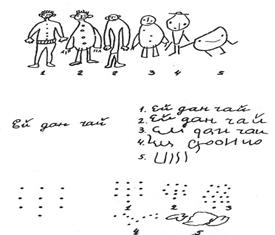 1 2 2 3 4 5
Ей дан чай
1. Ей дан чай
2. Ей дан чай
3. Ем дан чаи
4.
5.
1 2 3
4 5